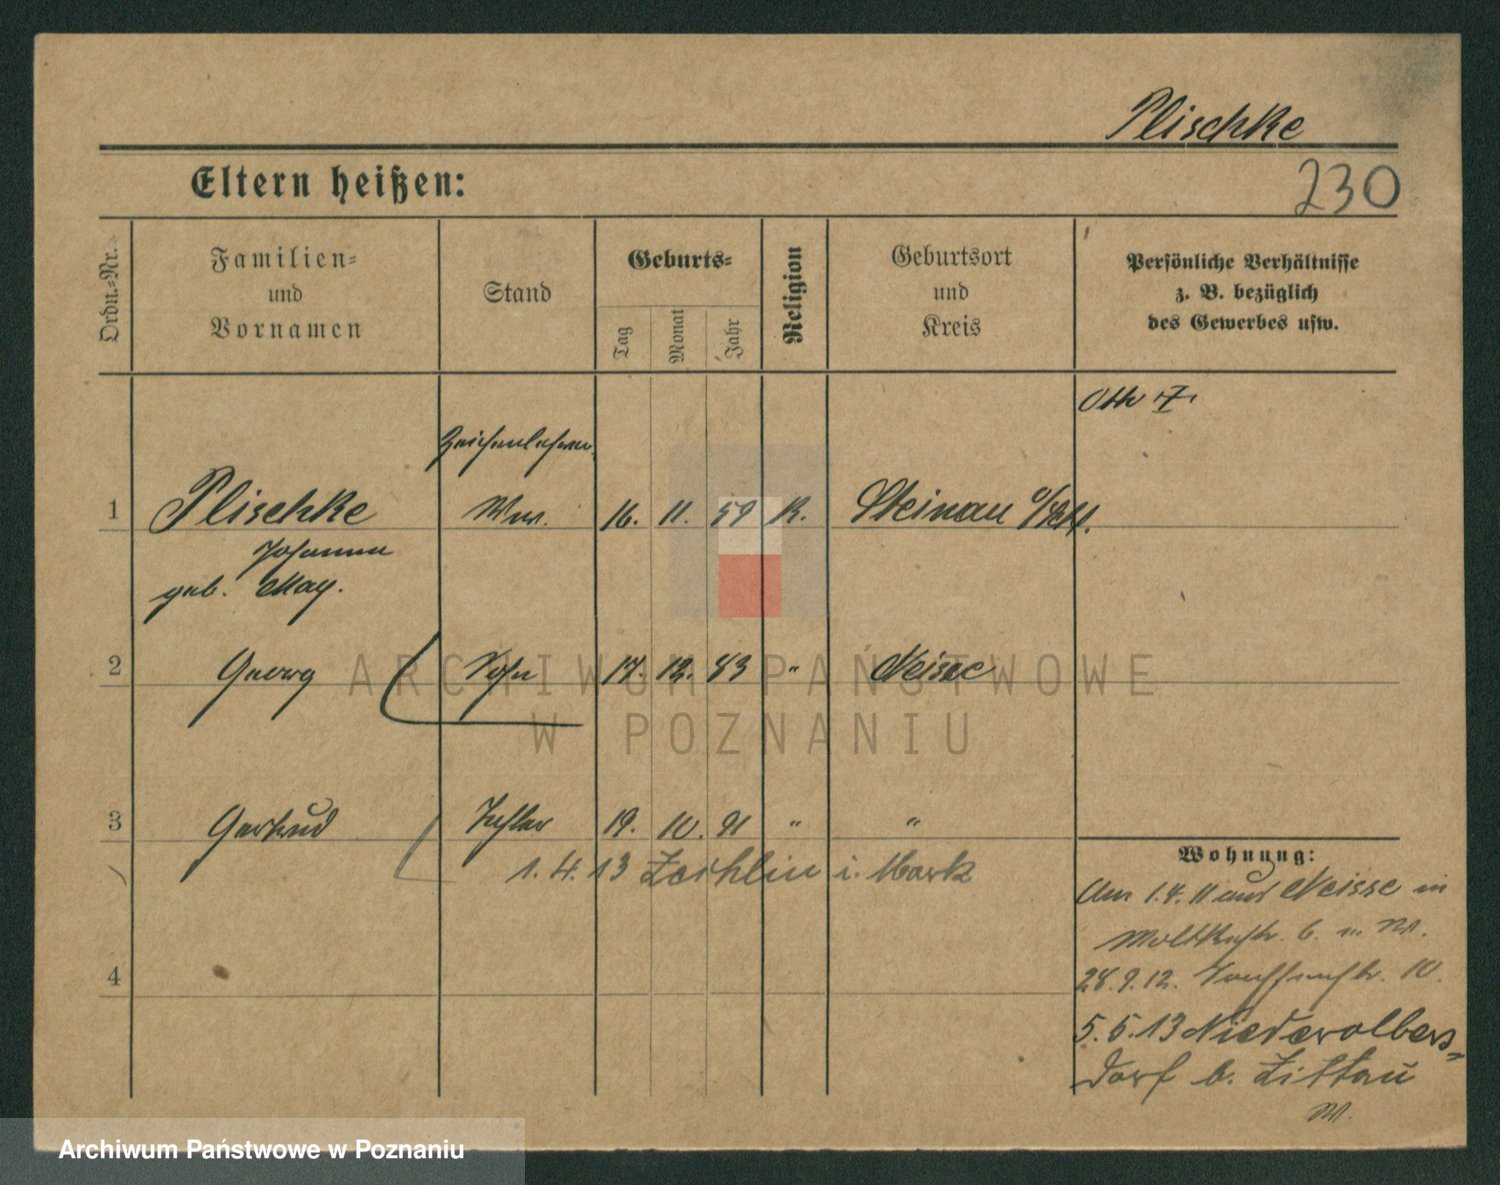 Plischke
Eltern heißen:
230
Ordn.=Nr.
Familien=
und
Vornamen
Stand
Geburts=
Tag
Monat
Jahr
Religion
Geburtsort
und
Kreis
Persönliche Verhältnisse
z. B. bezüglich
des Gewerbes usw.
Otto
Zeichenlehrer
1 Plischke Ww. 16. 11. 59 K. Steinau o/Sch.
Johanna
geb. May.
2 Georg Sohn 17. 12. 83 " Neisse
3 Gertrud Tochter 19. 10. 91 " "
1. 4. 13 Zechlin i. Mark
4
Wohnung:
Am 1.4.11 aus Neisse in
Moltkestr. 6.
28.9.12. 10.
5.5.13 Niederolbers=
dorf b. Zittau
ARCHIWUM PAŃSTWOWE
W POZNANIU
Archiwum Państwowe w Poznaniu